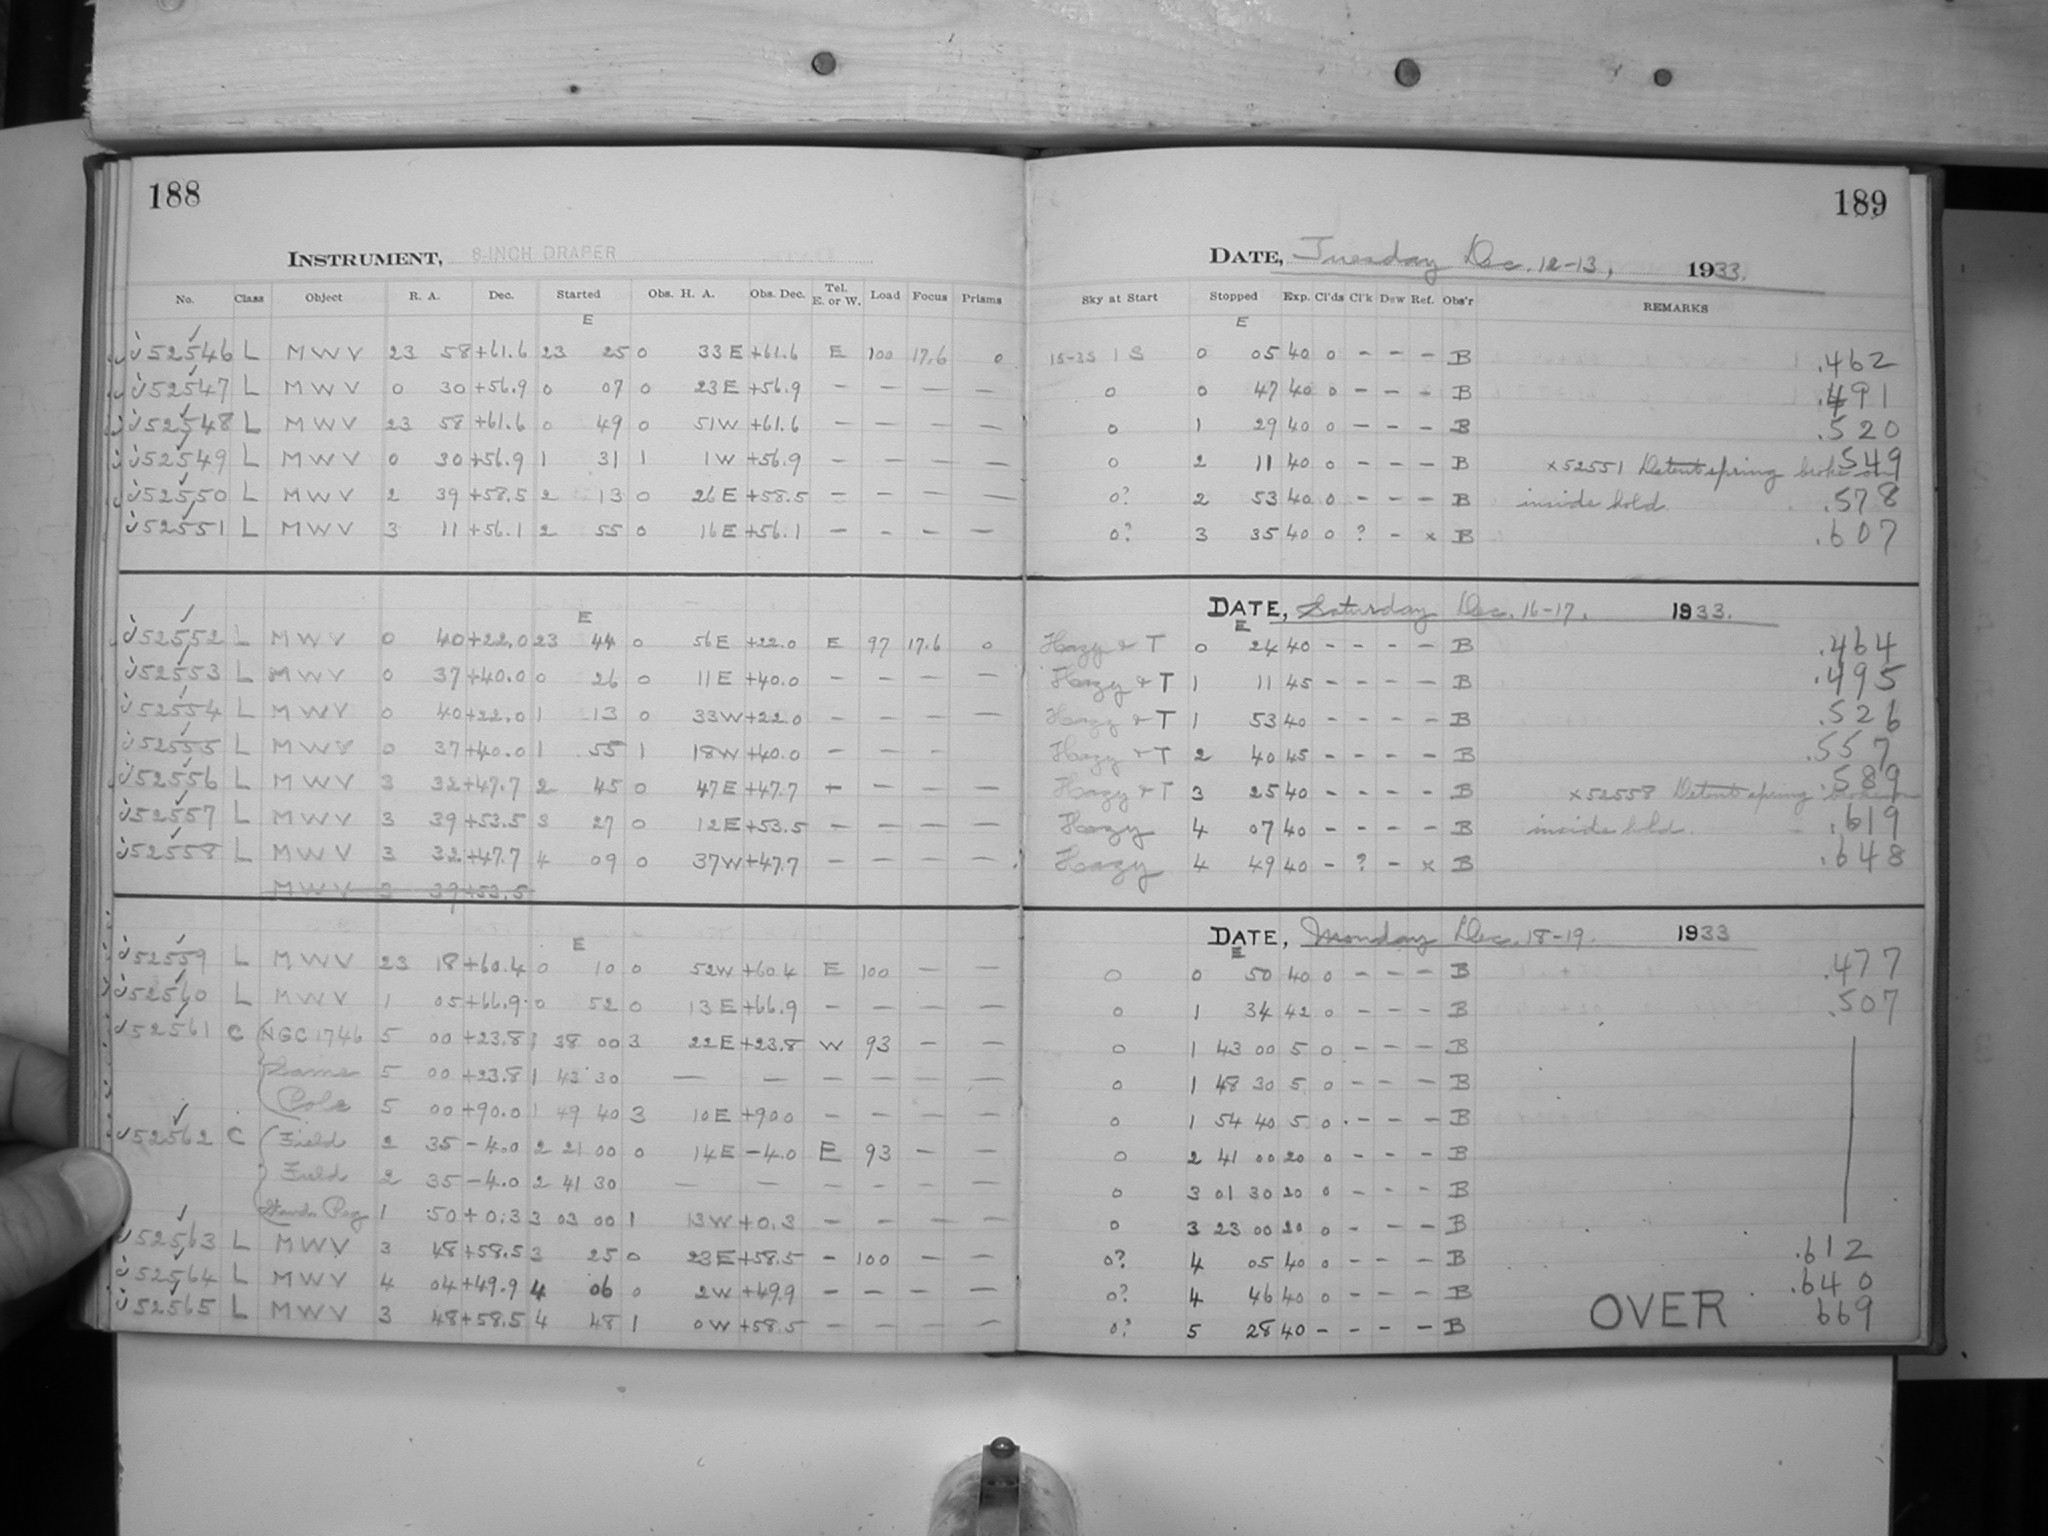 188
189
INSTRUMENT, 8-INCH DRAPER
DATE, Tuesday Dec. 12-13, 1933.
No. Class Object R. A. Dec. Started Obs. H. A. Obs. Dec. Tel. E. or W. Load Focus Prisms Sky at Start Stopped Exp. Cl'ds Cl'k Dew Ref. Obs'r REMARKS
E E
J52546 L MWV 23 58 +61.6 23 25 0 33E +61.6 E 100 17.6 0 15-35 1 S 0 05 40 0 - - - B .462
J52547 L MWV 0 30 +56.9 0 07 0 23E +56.9 - - - - 0 0 47 40 0 - - - B .491
J52548 L MWV 23 58 +61.6 0 49 0 51W +61.6 - - - - 0 1 29 40 0 - - - B .520
J52549 L MWV 0 30 +56.9 1 31 1 1W +56.9 - - - - 0 2 11 40 0 - - - B x52551 Detent spring broke on .549
J52550 L MWV 2 39 +58.5 2 13 0 26E +58.5 - - - - 0? 2 53 40 0 - - - B inside hold. .578
J52551 L MWV 3 11 +56.1 2 55 0 16E +56.1 - - - - 0? 3 35 40 0 ? - x B .607
DATE, Saturday Dec. 16-17, 1933.
E E
J52552 L MWV 0 40 +22.0 23 44 0 56E +22.0 E 97 17.6 0 Hazy & T 0 24 40 - - - - B .464
J52553 L MWV 0 37 +40.0 0 26 0 11E +40.0 - - - - Hazy & T 1 11 45 - - - - B .495
J52554 L MWV 0 40 +22.0 1 13 0 33W +22.0 - - - - Hazy & T 1 53 40 - - - - B .526
J52555 L MWV 0 37 +40.0 1 55 1 18W +40.0 - - - Hazy & T 2 40 45 - - - - B .557
J52556 L MWV 3 32 +47.7 2 45 0 47E +47.7 - - - - Hazy & T 3 25 40 - - - - B x52558 Detent spring broke on .589
J52557 L MWV 3 39 +53.5 3 27 0 12E +53.5 - - - - Hazy 4 07 40 - - - - B inside hold. .619
J52558 L MWV 3 32 +47.7 4 09 0 37W +47.7 - - - - Hazy 4 49 40 - ? - x B .648
MWV 3 39 +53.5
DATE, Monday Dec. 18-19. 1933
E E
J52559 L MWV 23 18 +60.4 0 10 0 52W +60.4 E 100 - - 0 0 50 40 0 - - - B .477
J52560 L MWV 1 05 +66.9 0 52 0 13E +66.9 - - - - 0 1 34 42 0 - - - B .507
J52561 C NGC 1746 5 00 +23.8 1 38 00 3 22E +23.8 W 93 - - 0 1 43 00 5 0 - - - B
Same 5 00 +23.8 1 43 30 - - - - - - 0 1 48 30 5 0 - - - B
Pole 5 00 +90.0 1 49 40 3 10E +90.0 - - - - 0 1 54 40 5 0 - - - B
J52562 C Field 2 35 -4.0 2 21 00 0 14E -4.0 E 93 - - 0 2 41 00 20 0 - - - B
Field 2 35 -4.0 2 41 30 - - - - - - 0 3 01 30 20 0 - - - B
Stand. Reg 1 50 +0.3 3 03 00 1 13W +0.3 - - - - 0 3 23 00 20 0 - - - B
J52563 L MWV 3 48 +58.5 3 25 0 23E +58.5 - 100 - - 0? 4 05 40 0 - - - B .612
J52564 L MWV 4 04 +49.9 4 06 0 2W +49.9 - - - - 0? 4 46 40 0 - - - B .640
J52565 L MWV 3 48 +58.5 4 48 1 0W +58.5 - - - - 0? 5 28 40 - - - - B OVER 669